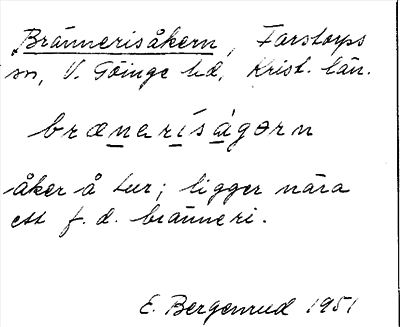 Brännerisåkern, Farstorps
sn, V. Göinge hd, Krist. län.
brænerísàgørn
åker å tur; ligger nära
ett f. d. bränneri.
E. Bergenrud 1951